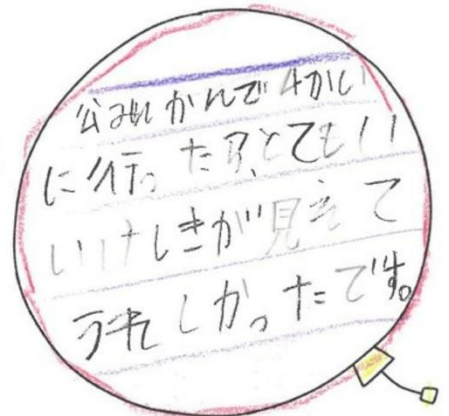 公みんかんで4かい
に行ったら、とてもい
いけしきが見えて
うれしかったです。